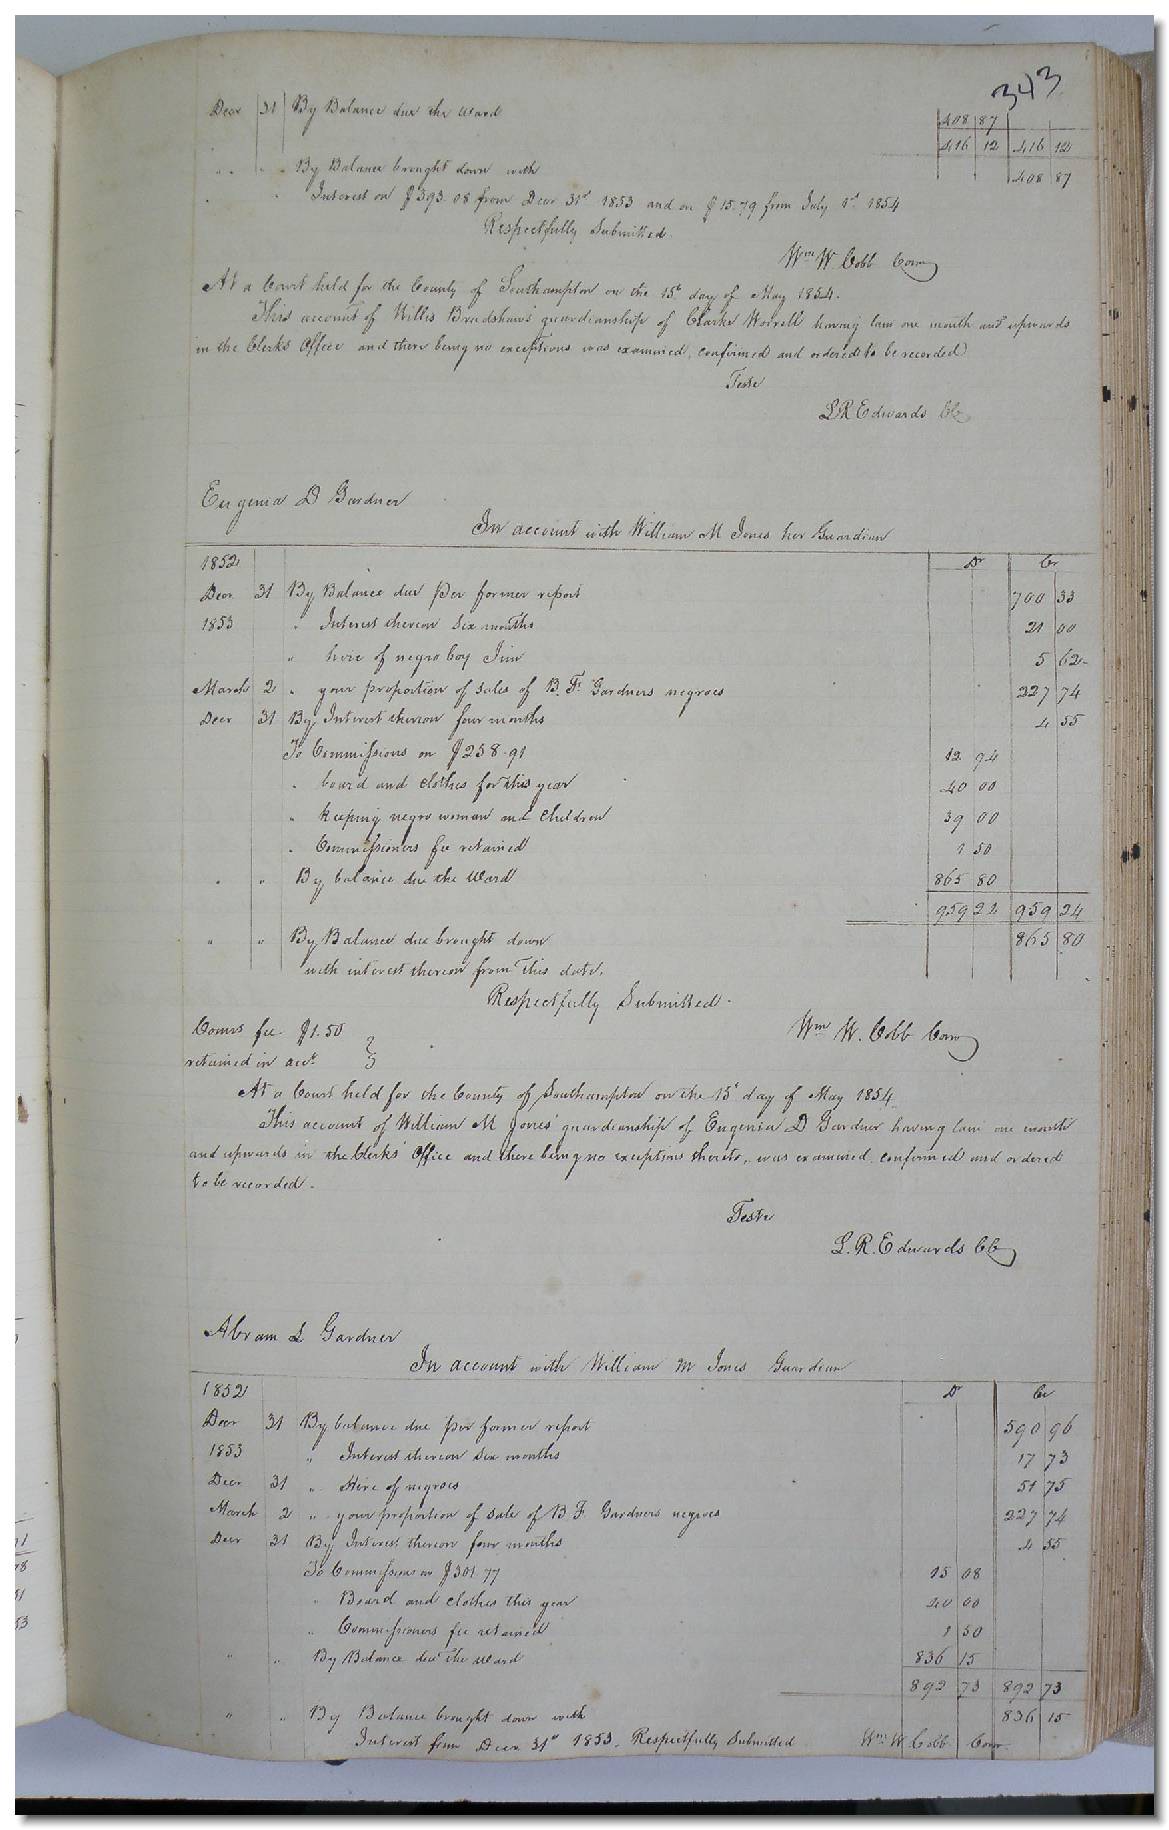 343
Decr 31 By Balance due the Ward 408 87
416 12 416 12
" " " " By Balance brought down with 408 87
Interest on $393.08 from Decr 31st 1853 and on $15.79 from July 1st 1854
Respectfully Submitted.
Wm W Cobb Comr
At a Court held for the County of Southampton on the 15th day of May 1854.
This account of Willis Bradshaws guardianship of Clarke Worrell having lain one month and upwards
in the Clerks Office and there being no exceptions was examined, confirmed and ordered to be recorded
Teste
L R Edwards CC
Eugenia D Gardner
In account with William M Jones her Guardian
1852 Dr Cr
Decr 31 By Balance due per former report 700 33
1853 " Interest thereon six months 21 00
" hire of negro boy Jim 5 62
March 2 " your proportion of sales of B. F. Gardners negroes 227 74
Decr 31 By Interest thereon four months 4 55
To Commissions on $258.91 12 94
" board and clothes for this year 40 00
" keeping negro woman and children 39 00
" Commissioners fee retained 1 50
" " By balance due the Ward 865 80
959 24 959 24
" " By Balance due brought down 865 80
with interest thereon from this date.
Respectfully Submitted.
Coms fee $1.50 Wm W. Cobb Comr
retained in acct
At a Court held for the County of Southampton on the 15th day of May 1854
This account of William M Jones' guardianship of Eugenia D Gardner having lain one month
and upwards in the Clerks' Office and there being no exceptions thereto, was examined, confirmed and ordered
to be recorded.
Teste
L. R. Edwards CC
Abram L Gardner
In account with William M Jones Guardian
1852 Dr Cr
Decr 31 By balance due per former report 590 96
1853 " Interest thereon six months 17 73
Decr 31 " Hire of negroes 51 75
March 2 " your proportion of sale of B F Gardners negroes 227 74
Decr 31 By Interest thereon four months 4 55
To Commissions on $301.77 15 08
" Board and clothes this year 40 00
" Commissioners fee retained 1 50
" " By Balance due the Ward 836 15
892 73 892 73
" " By Balance brought down with 836 15
Interest from Decr 31st 1853. Respectfully Submitted Wm W Cobb Comr